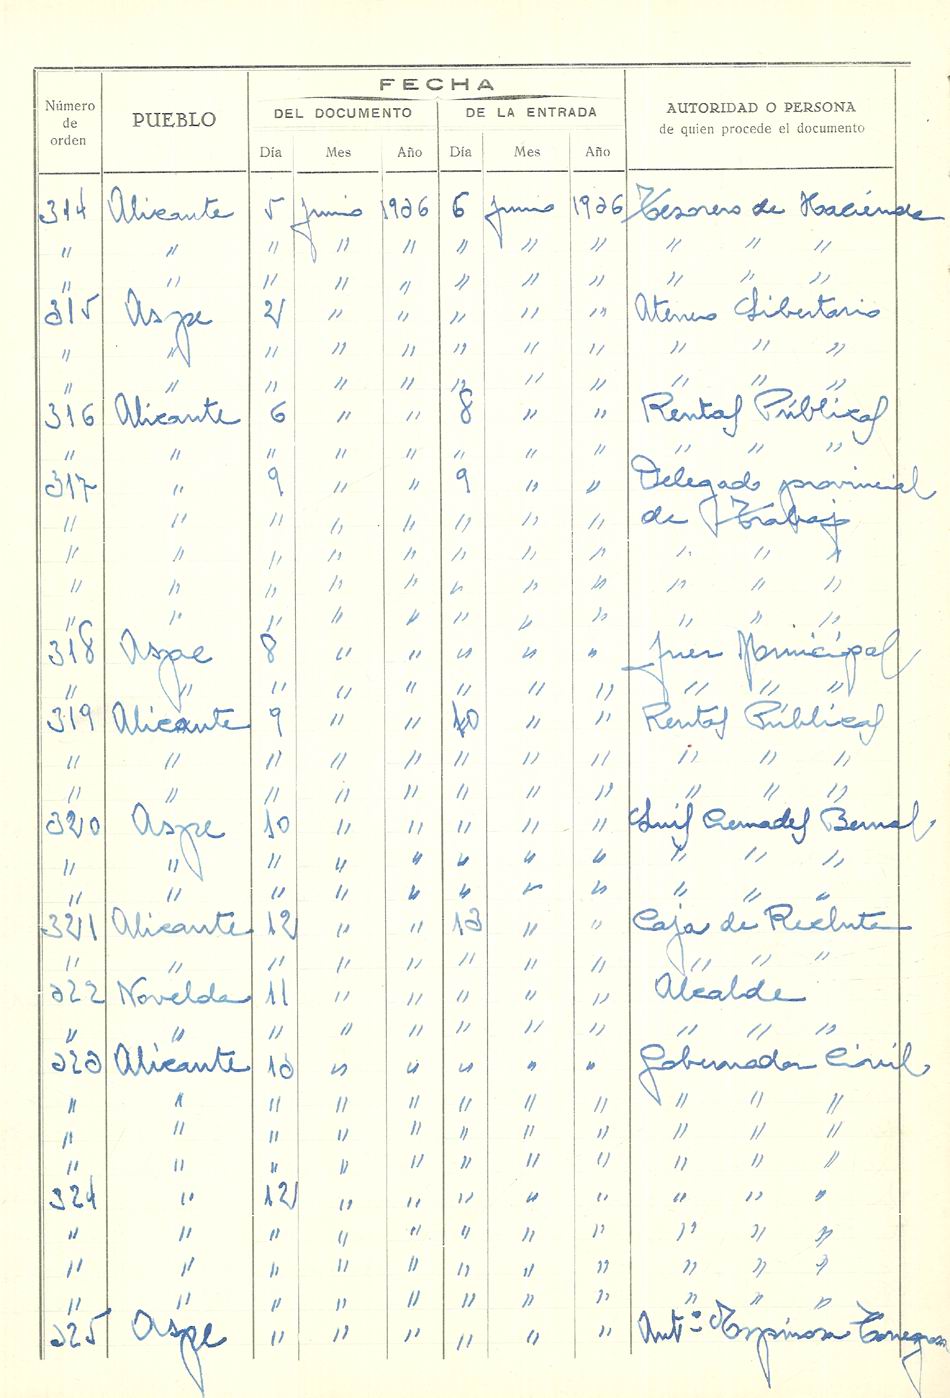 FECHA
Número de orden PUEBLO DEL DOCUMENTO DE LA ENTRADA AUTORIDAD O PERSONA de quien procede el documento
Día Mes Año Día Mes Año
314 Alicante 5 Junio 1936 6 Junio 1936 Tesorero de Hacienda
" " " " " " " " " " "
" " " " " " " " " " "
315 Aspe 2 " " " " " Ateneo Libertario
" " " " " " " " " " "
" " " " " " " " " " "
316 Alicante 6 " " 8 " " Rentas Públicas
" " " " " " " " " " "
317 " 9 " " 9 " " Delegado provincial
" " " " " " " " de Trabajo
" " " " " " " " " " "
" " " " " " " " " " "
" " " " " " " " " " "
318 Aspe 8 " " " " " Juez Municipal
" " " " " " " " " " "
319 Alicante 9 " " 10 " " Rentas Públicas
" " " " " " " " " " "
" " " " " " " " " " "
320 Aspe 10 " " " " " Luis Cremades Bernal
" " " " " " " " " " "
" " " " " " " " " " "
321 Alicante 12 " " 13 " " Caja de Recluta
" " " " " " " " " " "
322 Novelda 11 " " " " " Alcalde
" " " " " " " " " " "
323 Alicante 13 " " " " " Gobernador Civil
" " " " " " " " " " "
" " " " " " " " " " "
" " " " " " " " " " "
324 " 12 " " " " " " " "
" " " " " " " " " " "
" " " " " " " " " " "
" " " " " " " " " " "
325 Aspe " " " " " " Antº Espinosa